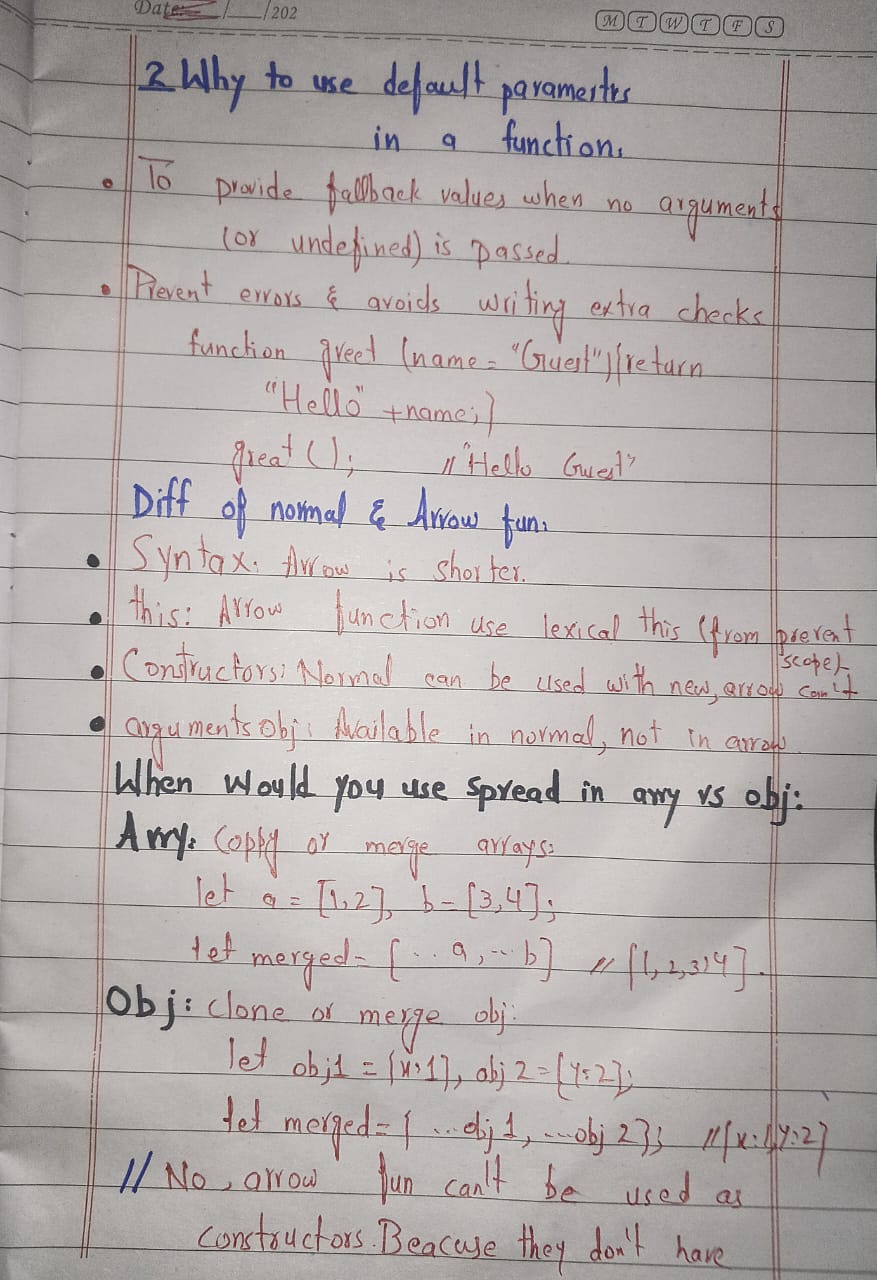 Date: / /202
M T W T F S
2 Why to use default paramertrs
in a function.
• To provide fallback values when no arguments
(or undefined) is passed.
• Prevent errors & avoids writing extra checks
function greet (name = "Guest"){return
"Hello" +name;}
great(); // "Hello Guest"
Diff of normal & Arrow fun.
• Syntax: Arrow is shorter.
• this: Arrow function use lexical this (from prevent
scope)
• Constructors: Normal can be used with new, arrow can't
• arguments obj: Available in normal, not in arrow.
When would you use spread in arry vs obj:
Arry: Coppy or merge arrays:
let a = [1,2], b = [3,4];
let merged = [...a, ...b] // [1,2,3,4].
Obj: clone or merge obj:
let obj1 = {x:1}, obj2 = {y:2};
let merged = { ...obj1, ...obj2}; // {x:1,y:2}
// No, arrow fun can't be used as
constructors. Beacuse they don't have